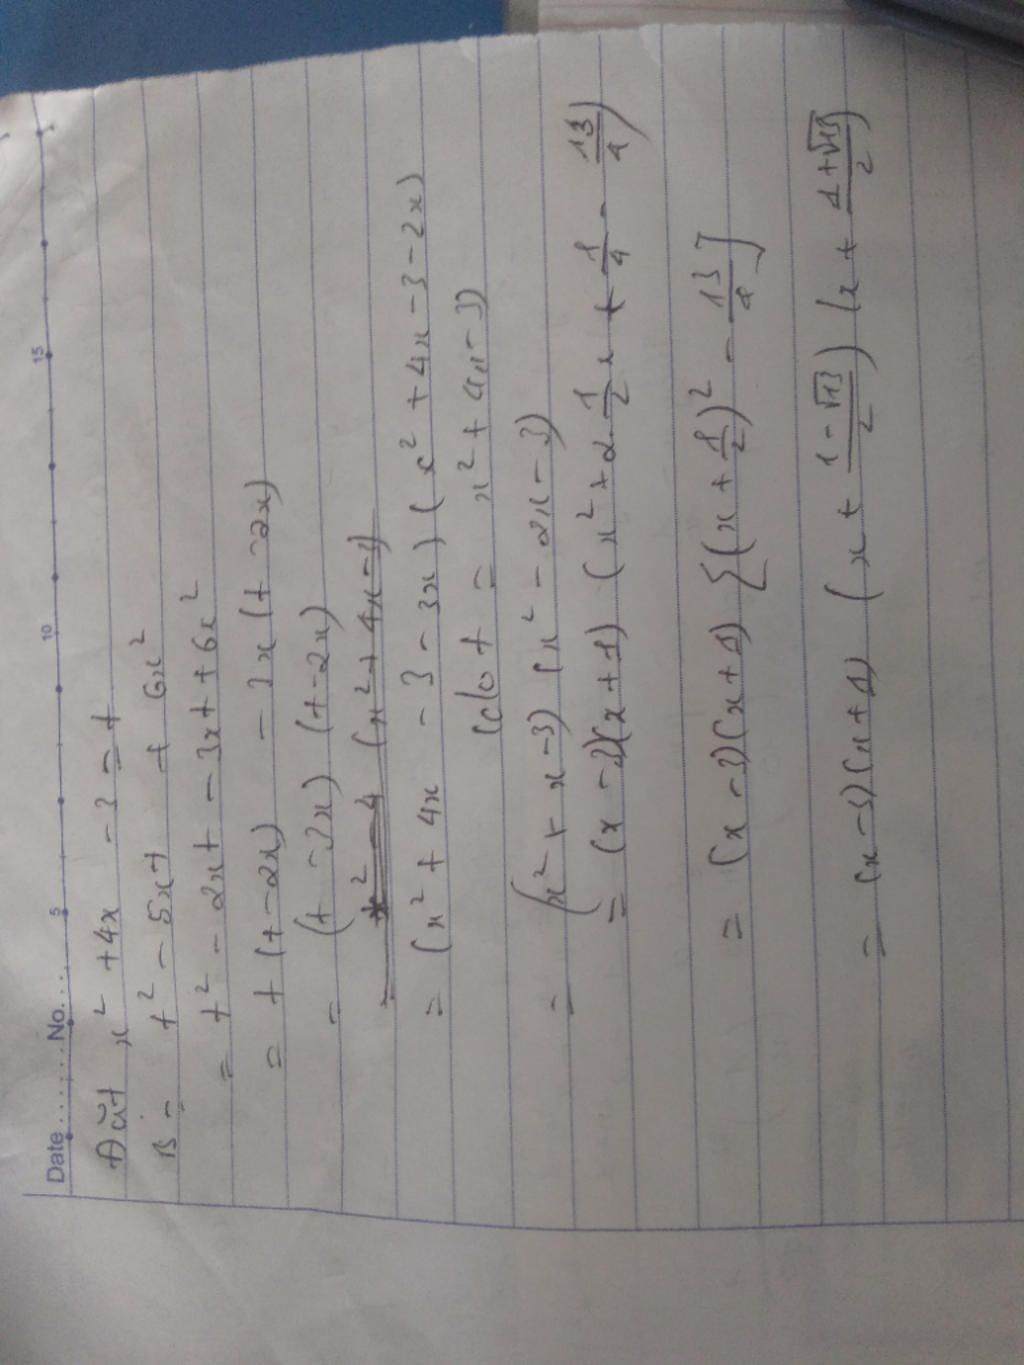 Date ...... No. ...
5 10 15
Đặt x² + 4x - 3 = t
B = t² - 5xt + 6x²
= t² - 2xt - 3xt + 6x²
= t(t - 2x) - 3x(t - 2x)
= (t - 3x)(t - 2x)
= (x² + 4x - 3 - 3x)(x² + 4x - 3 - 2x)
(do t = x² + 4x - 3)
= (x² + x - 3)(x² - 2x - 3)
= (x - 3)(x + 1)(x² + 2.1/2x + 1/4 - 13/4)
= (x - 3)(x + 1){(x + 1/2)² - 13/4]
= (x - 3)(x + 1)(x + 1-√13/2)(x + 1+√13/2)